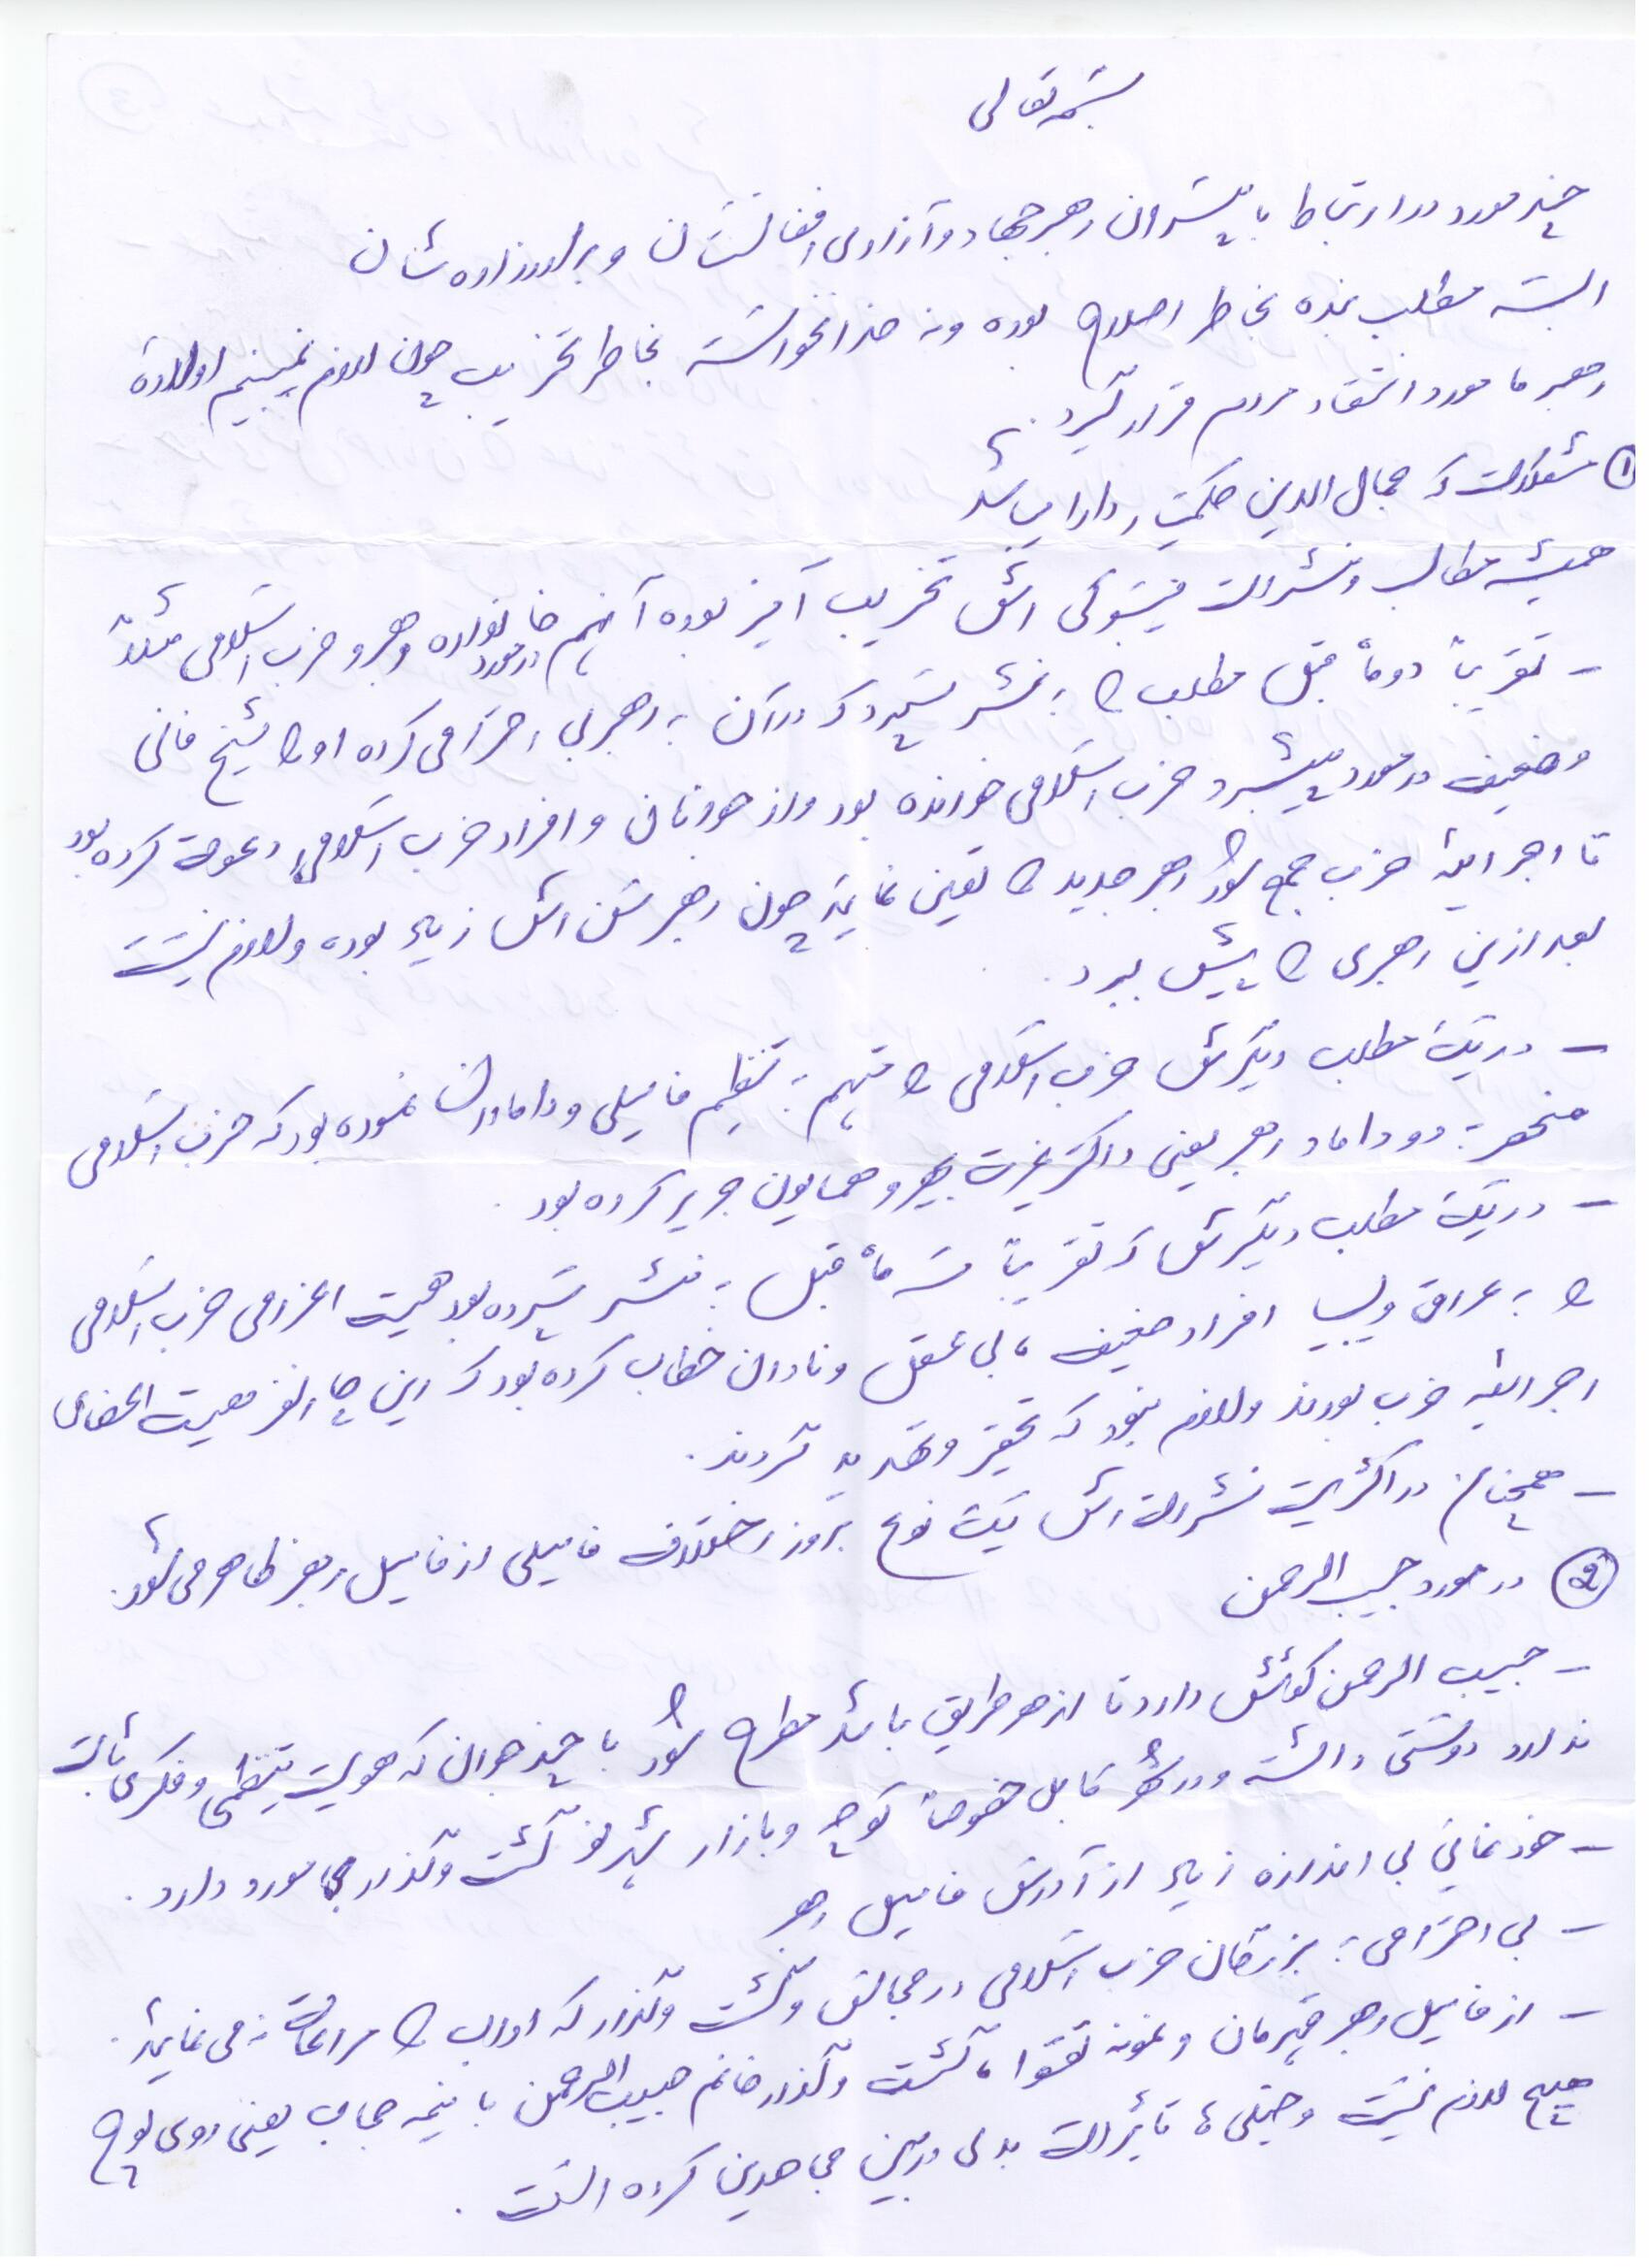 بسمه تعالی
چند مورد در ارتباط با پسران رهبر جهاد و آزادی افغانستان و برادرزاده شان
البته مطلب بنده بخاطر اصلاح بوده و نه خدانخواسته بخاطر تخریب چون لازم نمیبینیم اولاده
رهبر ما مورد انتقاد مردم قرار گیرد.
① مشکلات که جمال الدین حکمتیار دارا میباشد
همیشه مطالب و نشرات فیسبوکی اش تخریب آمیز بوده آنهم در مورد خانواده رهبر و حزب اسلامی مثلاً
- تقریباً دو ماه قبل مطلب را به نشر سپرد که در آن به رهبر بی احترامی کرده او را شیخ فانی
وضعیف در مورد پیشبرد حزب اسلامی خوانده بود و از جوانان و افراد حزب اسلامی دعوت کرده بود
تا اجرائیه حزب جمع شود رهبر جدید را تعین نماید چون رهبر سن اش زیاد بوده و لازم نیست
بعد ازین رهبری را پیش ببرد.
- در یک مطلب دیگرش حزب اسلامی را متهم به تنظیم فامیلی و دامادان نموده بود که حزب اسلامی
منحصر به دو داماد رهبر یعنی داکتر غیرت بهیر و همایون جریر کرده بود.
- در یک مطلب دیگرش که تقریباً سه ماه قبل به نشر سپرده بود هیت اعزامی حزب اسلامی
را به عراق و لیبیا افراد ضعیف، بی عقل و نادان خطاب کرده بود که این چهار نفر هیت اعضای
اجرائیه حزب بودند و لازم نبود که تحقیر و تهدید گردند.
- همچنان در اکثریت نشرات اش یک نوع بروز اختلاف فامیلی از فامیل رهبر ظاهر می شود.
② در مورد حبیب الرحمن
- حبیب الرحمن کوشش دارد تا از هر طریق باشد مطرح شود با چند جوان که هویت تنظیمی و فکری ثابت
ندارد دوستی داشته و در شهر کابل خصوصاً کوچه و بازار شهرنو گشت و گذار بی مورد دارد.
- خود نمائی بی اندازه زیاد از آدرس فامیل رهبر
- بی احترامی به بزرگان حزب اسلامی در مجالس و گشت و گذار که آداب را مراعات نه می نماید.
- از فامیل رهبر قهرمان و نمونه تقوا، گشت و گذار خانم حبیب الرحمن با نیمه حجاب یعنی روی لوچ
هیچ لازم نیست و خیلی ها تاثیرات بدی در بین مجاهدین کرده است.